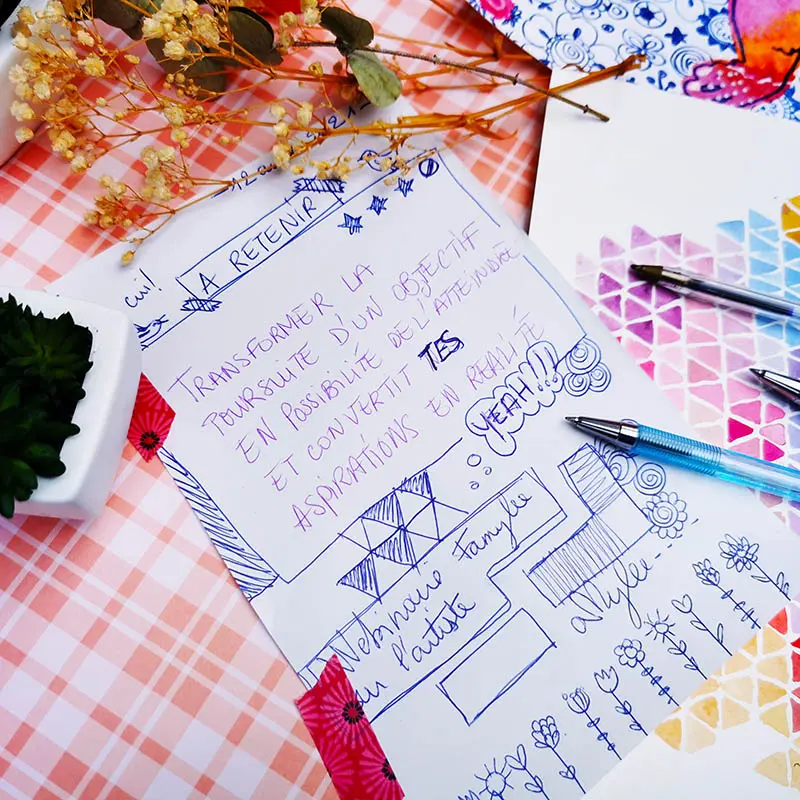 A RETENIR
cui!
TRANSFORMER LA
POURSUITE D'UN OBJECTIF
EN POSSIBILITÉ DE L'ATTEINDRE
ET CONVERTIT TES
ASPIRATIONS EN REALITÉ
YEAH!!!
Webinaire Famylee
l'artiste